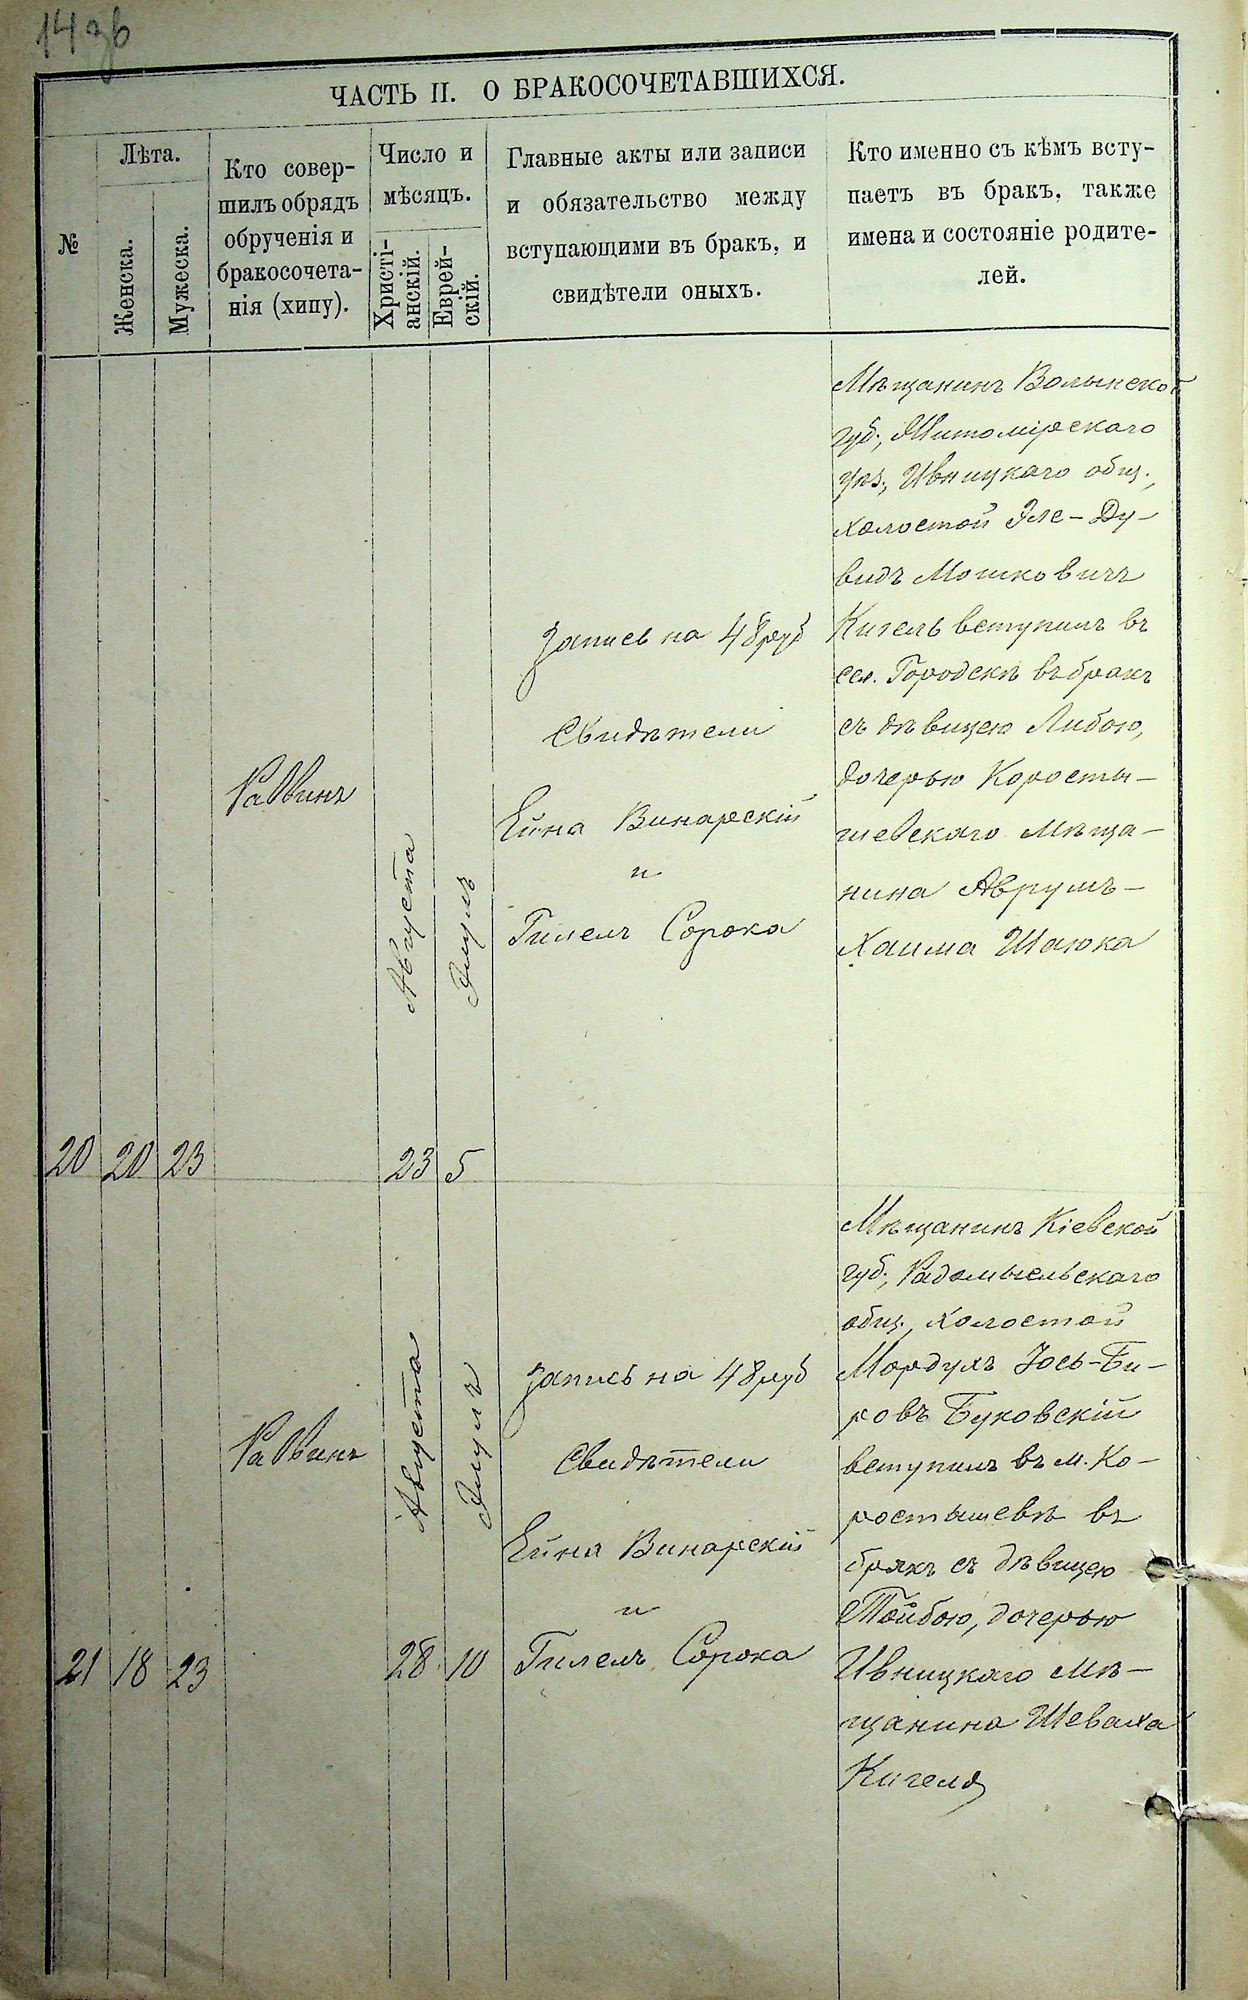 14 зв
ЧАСТЬ II. О БРАКОСОЧЕТАВШИХСЯ.
№
Лѣта.
Женска.
Мужеска.
Кто совер-
шилъ обрядъ
обрученія и
бракосочета-
нія (хипу).
Число и
мѣсяцъ.
Христі-
анскій.
Еврей-
скій.
Главные акты или записи
и обязательство между
вступающими въ бракъ, и
свидѣтели оныхъ.
Кто именно съ кѣмъ всту-
паетъ въ бракъ, также
имена и состояніе родите-
лей.
20
20
23
Раввинъ
Августа
23
Элулъ
5
Запись на 48 руб
Свидѣтели
Ейна Винарскій
и
Гилелъ Сорока
Мѣщанинъ Волынской
губ., Житомірскаго
уѣз., Ивницкаго общ.,
холостой Эле-Ду-
видъ Мошковичъ
Кигель вступилъ въ
сел. Городскѣ въ бракъ
съ дѣвицею Либою,
дочерью Коросты-
шевскаго мѣща-
нина Аврумъ-
Хаима Шаюка
21
18
23
Раввинъ
Августа
28
Элулъ
10
Запись на 48 руб
Свидѣтели
Ейна Винарскій
и
Гилелъ Сорока
Мѣщанинъ Кіевской
губ., Радомысльскаго
общ., холостой
Мордухъ Іось-Би-
ровъ Буковскій
вступилъ въ м. Ко-
ростышевѣ въ
бракъ съ дѣвицею
Тойбою, дочерью
Ивницкаго мѣ-
щанина Шеваха
Кигеля